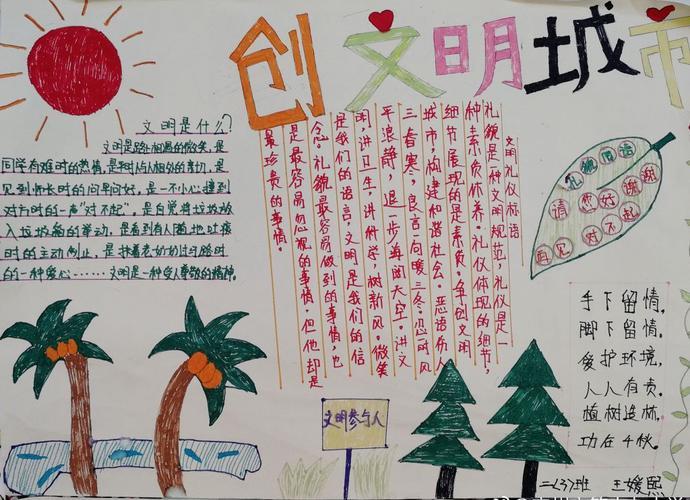 创文明城市
文明是什么?
文明是路相遇的微笑,是
同学有难时的热情,是平时与人相处的亲切,是
见到师长时的问早问好,是一不小心撞到
对方时的一声"对不起",是自觉将垃圾放
入垃圾箱的举动,是看到有人随地吐痰
时的主动制止,是扶着老奶奶过马路时
的一种爱心……文明是一种受人尊敬的精神。
文明礼仪标语
礼貌是一种文明规范,礼仪是一
种素质休养。礼仪体现的细节,
细节展现的是素质。争创文明
城市,构建和谐社会。恶语伤人
三春寒,良言一向暖三冬。忍时风
平浪静,退一步海阔天空。讲文
明,讲卫生,讲科学,树新风。微笑
是我们的语言,文明是我们的信
念。礼貌最容易做到的事情,也
是最容易忽视的事情。但他却是
最珍贵的事情。
礼貌用语
请 您好 谢谢
再见 对不起
手下留情,
脚下留情,
爱护环境,
人人有责,
植树造林,
功在千秋。
文明参与人
二(3)班 王媛熙